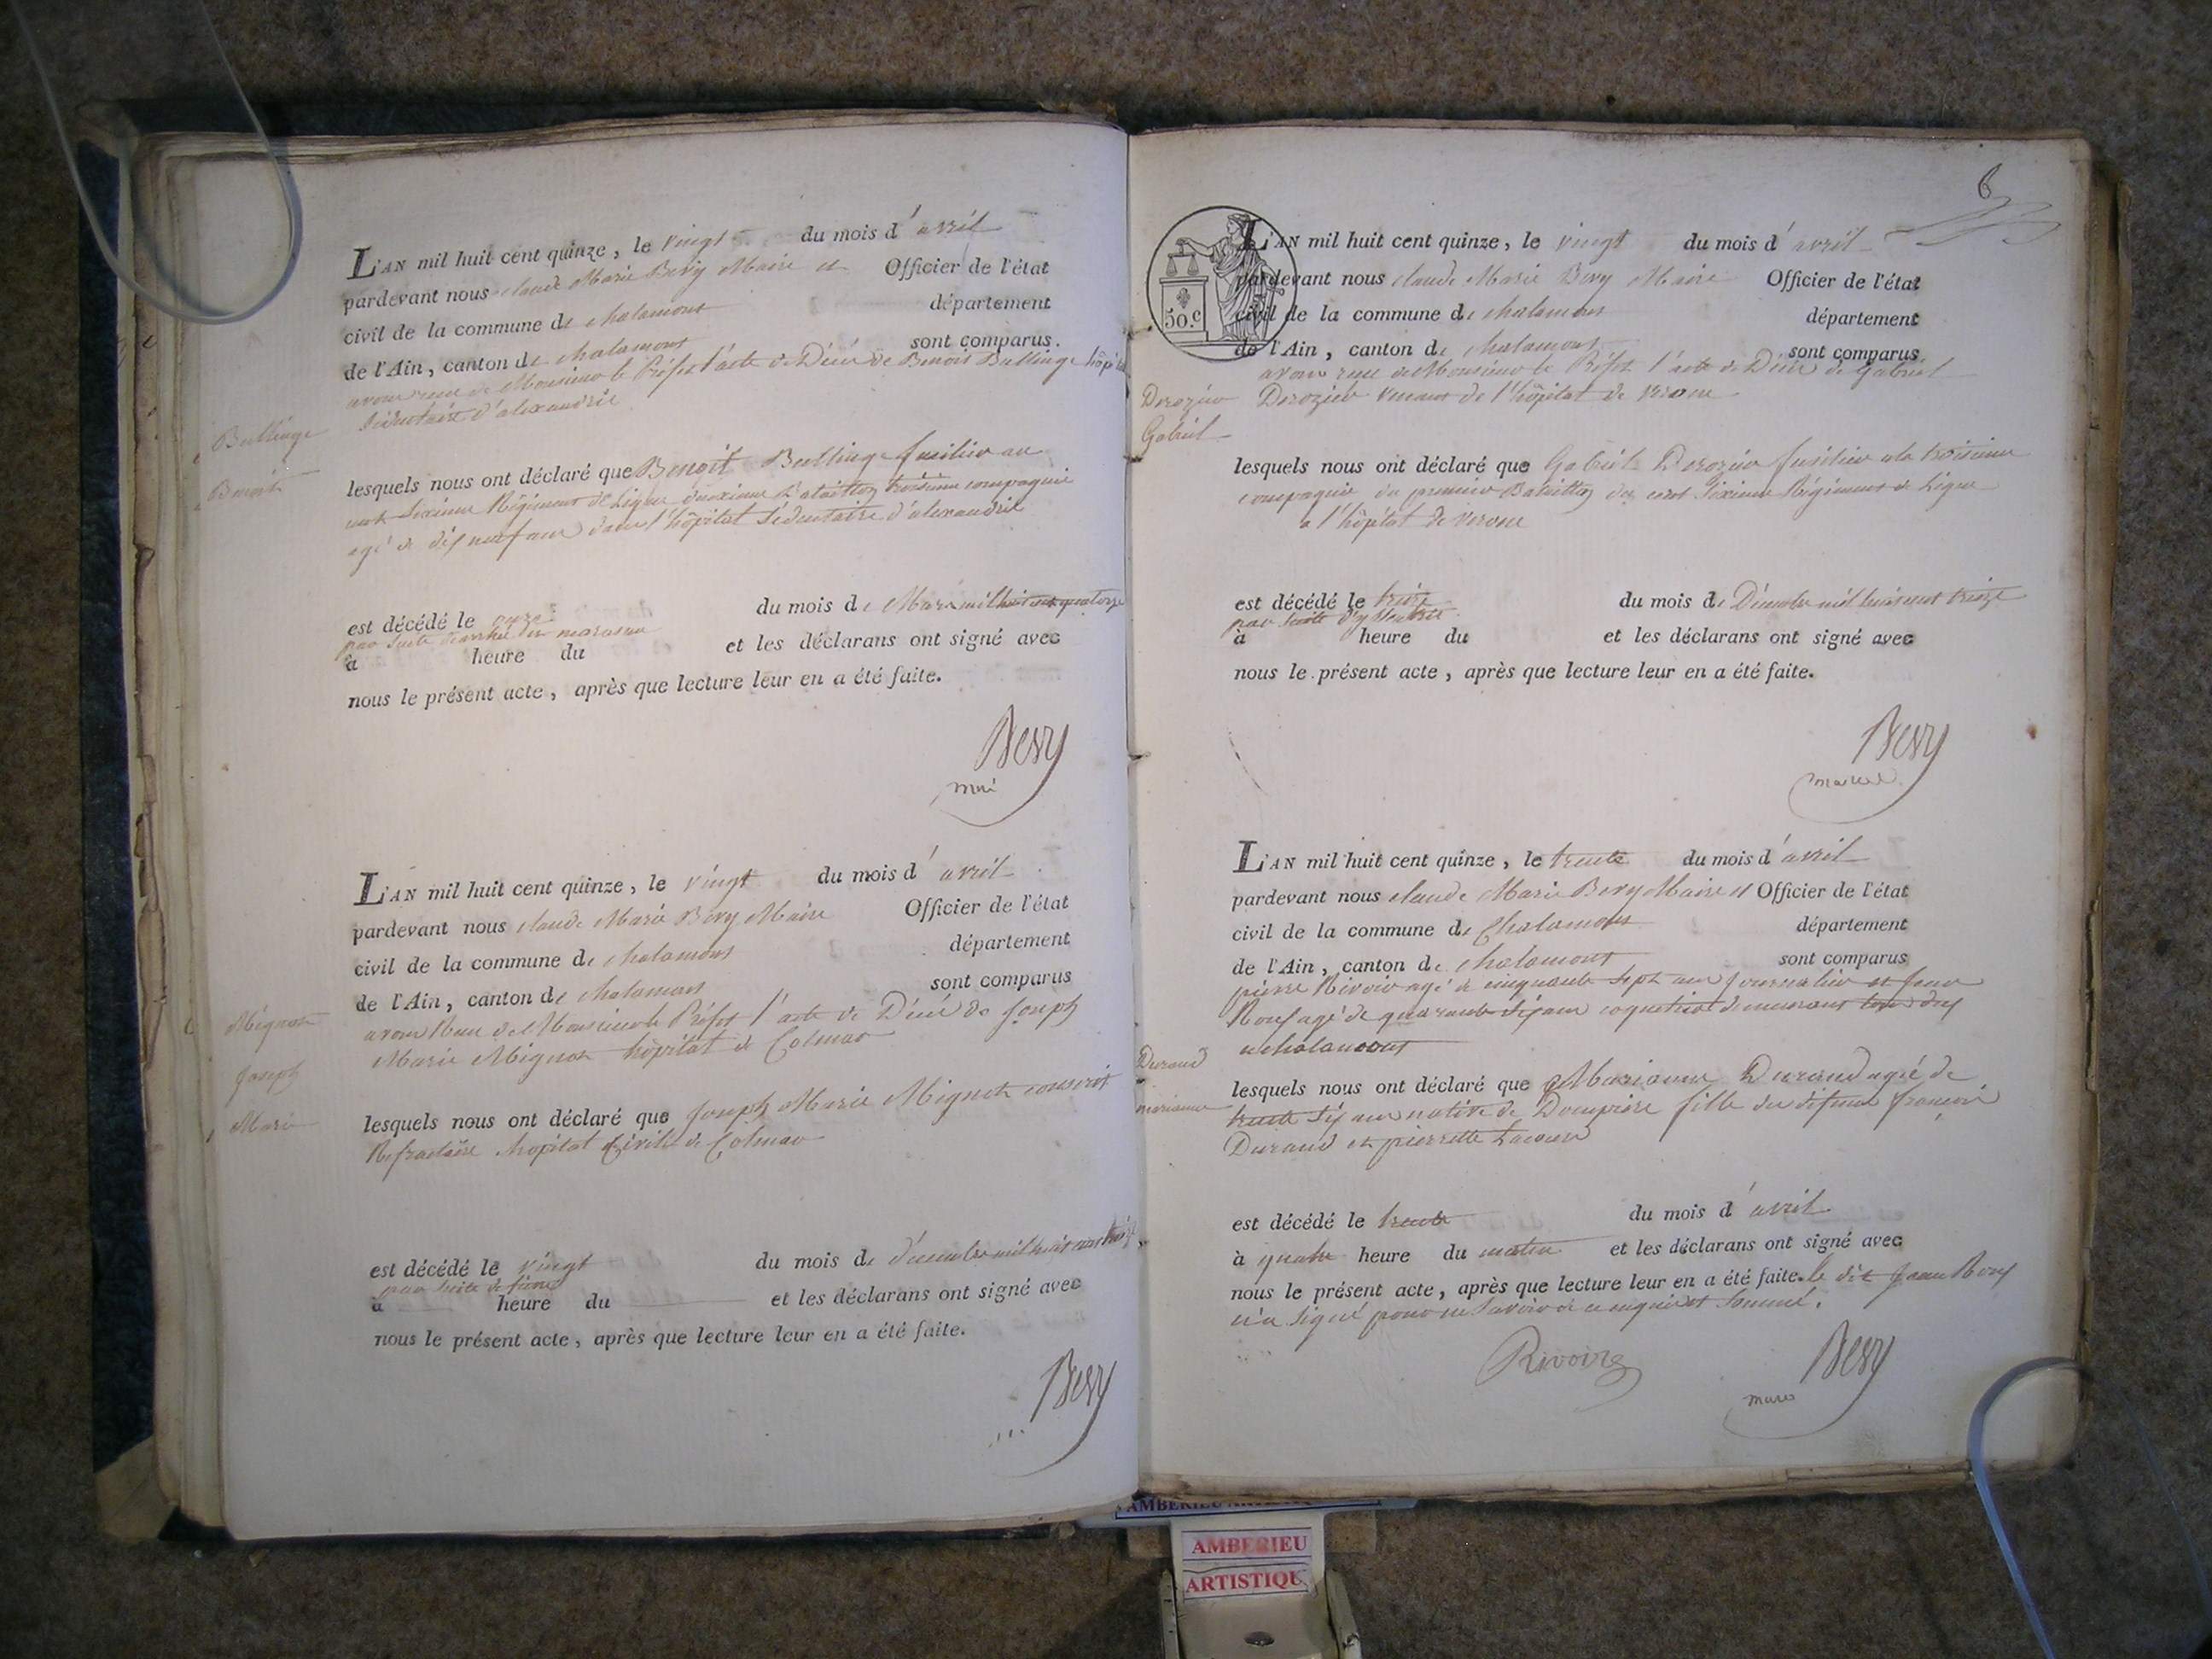 L'AN mil huit cent quinze, le vingt du mois d'avril
pardevant nous claude Marie Bevy Maire et Officier de l'état
civil de la commune de chalamont département
de l'Ain, canton de chalamont sont comparus.
avons recu de Monsieur le Préfet l'acte de Décès de Benoit Bullinge hôpital
Sédentaire d'alexandrie
Bullinge
Benoit
lesquels nous ont déclaré que Benoit Bullinge fusilier au
cent Sixieme Régiment de Ligne deuxieme Bataillon troisieme compagnie
agé de dix neuf ans dans l'hôpital Sédentaire d'alexandrie
est décédé le onze du mois de Mars mil huit cent quatorze
par suite diarrhé et marasme
à heure du et les déclarans ont signé avec
nous le présent acte, après que lecture leur en a été faite.
Bevy
L'AN mil huit cent quinze, le vingt du mois d'avril
pardevant nous claude Marie Bevy Maire Officier de l'état
civil de la commune de chalamont département
de l'Ain, canton de chalamont sont comparus
avons Recu de Monsieur le Préfet l'acte de Décés de Joseph
Marie Mignot hôpital de Colmar
Mignot
Joseph
Marie
lesquels nous ont déclaré que Joseph Marie Mignot conscrit
Refractaire hopital Civil de Colmar
est décédé le vingt du mois de décembre mil huit cent treize
par suite de fievre
à heure du et les déclarans ont signé avec
nous le présent acte, après que lecture leur en a été faite.
Bevy
6
50.c
L'AN mil huit cent quinze, le vingt du mois d'avril
pardevant nous claude Marie Bevy Maire Officier de l'état
civil de la commune de chalamont département
de l'Ain, canton de chalamont sont comparus
avons recu de Monsieur le Préfet l'acte de Décés de Gabriel
Derozier venant de l'hôpital de verone
Derozier
Gabriel
lesquels nous ont déclaré que Gabriel Derozier fusilier a la troisieme
compagnie du premier Bataillon du cent Sixieme Régiment de Ligne
a l'hôpital de verone
est décédé le treize du mois de Décembre mil huit cent treize
par suite dyssentrie
à heure du et les déclarans ont signé avec
nous le présent acte, après que lecture leur en a été faite.
Bevy
L'AN mil huit cent quinze, le trente du mois d'avril
pardevant nous claude Marie Bevy Maire et Officier de l'état
civil de la commune de Chalamont département
de l'Ain, canton de chalamont sont comparus
pierre Rivoire agé de cinquante sept ans journalier et jean
Roux agé de quarante six ans coquetier demeurant tous deux
a chalamont
Durand
marianne
lesquels nous ont déclaré que Marianne Durand agée de
trente six ans native de Dompierre fille du défunt françois
Durand et pierrette
est décédé le trente du mois d'avril
à quatre heure du matin et les déclarans ont signé avec
nous le présent acte, après que lecture leur en a été faite. le dit jean Roux
n'a signé pour ne savoir de ce enquis et sommé.
Rivoire
Bevy
maire
AMBERIEU
ARTISTIQU